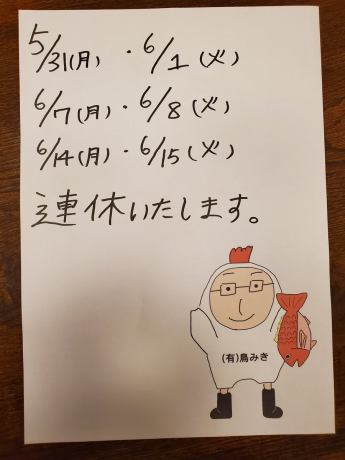 5/31(月)・6/1(火)
6/7(月)・6/8(火)
6/14(月)・6/15(火)
連休いたします。
(有)鳥みき